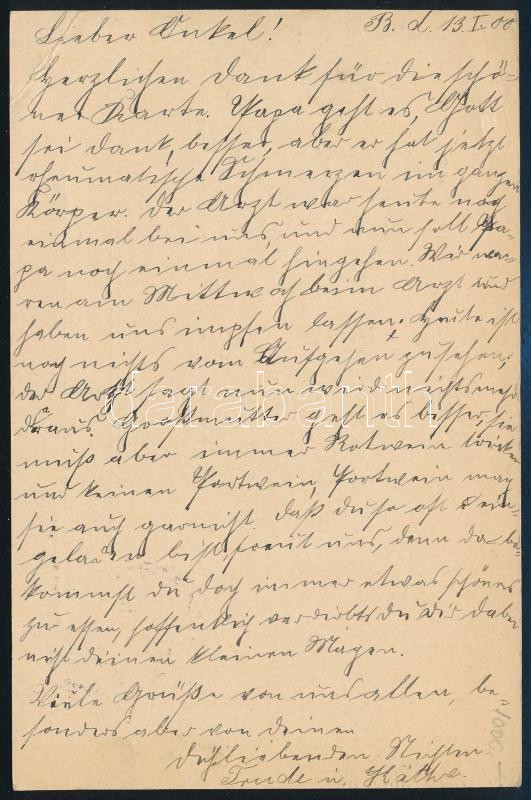 B. d. 13.I.00.
Lieber Onkel!
Herzlichen Dank für die schö-
ne Karte. Papa geht es, Gott
sei Dank, besser, aber er hat jetzt
rheumatische Schmerzen im ganzen
Körper. Der Arzt war heute noch
einmal bei uns, und nun soll Pa-
pa noch einmal hingehen. Wir wa-
ren am Mittwoch beim Arzt und
haben uns impfen lassen. Heute ist
noch nichts vom Aufgehen zu sehen;
der Arzt sagt nun wird nichts mehr
draus. Großmutter geht es besser, sie
muß aber immer Rotwein trinken
und keinen Portwein, Portwein mag
sie auch garnicht. Daß du so oft ein-
geladen bist freut uns, denn da be-
kommst du doch immer etwas schönes
zu essen, hoffentlich verdirbst du dir dabei
nicht deinen kleinen Magen.
Viele Grüße von uns allen, be-
sonders aber von deinen
dichliebenden Nichten
Trude u. Käthe.
1000,-
darabanth